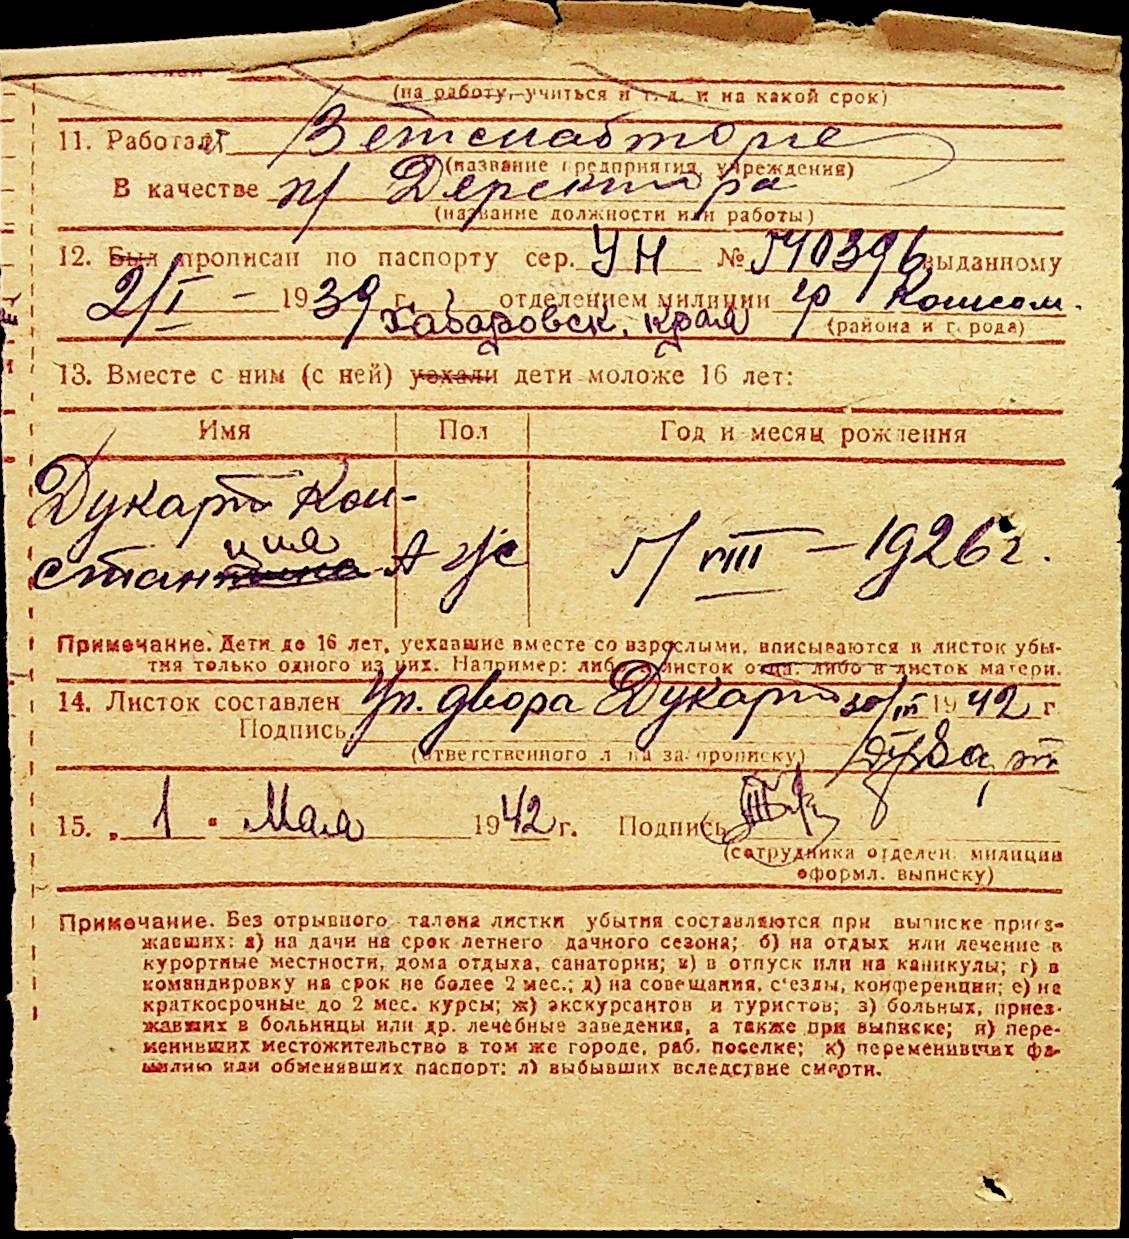 (на работу, учиться и т. д. и на какой срок)
11. Работает Ветснабторге
(название предприятия, учреждения)
В качестве п/ Деректора
(название должности или работы)
12. Был прописан по паспорту сер. УН № 540396 выданному
2/I – 1939 г. отделением милиции гр Комсом.
Хабаровск. края (района и города)
13. Вместе с ним (с ней) уехали дети моложе 16 лет:
Имя Пол Год и месяц рождения
Дукарт Кон-
ция
стантина А ж/с 5/VIII – 1926 г.
Примечание. Дети до 16 лет, уехавшие вместе со взрослыми, вписываются в листок убы-
тия только одного из них. Например: либо в листок отца, либо в листок матери.
14. Листок составлен Уп. двора Дукарт 30/III 1942 г.
Подпись
(ответственного л на за прописку)
15. „ 1 " Мая 1942 г. Подпись
(сотрудника отделен. милиции
оформл. выписку)
Примечание. Без отрывного талона листки убытия составляются при выписке приез-
жавших: а) на дачи на срок летнего дачного сезона; б) на отдых или лечение в
курортные местности, дома отдыха, санатории; в) в отпуск или на каникулы; г) в
командировку на срок не более 2 мес.; д) на совещания, с'езды, конференции; е) на
краткосрочные до 2 мес. курсы; ж) экскурсантов и туристов; з) больных, приез-
жавших в больницы или др. лечебные заведения, а также при выписке; и) пере-
менивших местожительство в том же городе, раб. поселке; к) переменивших фа-
милию или обменявших паспорт; л) выбывших вследствие смерти.